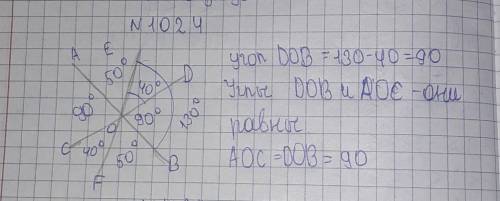 N 1024
A E D
50° 40°
90° 90° 130°
O
C 40° 50° B
F
угол DOB = 130-40=90
Углы DOB и AOC - они
равны
AOC = DOB = 90